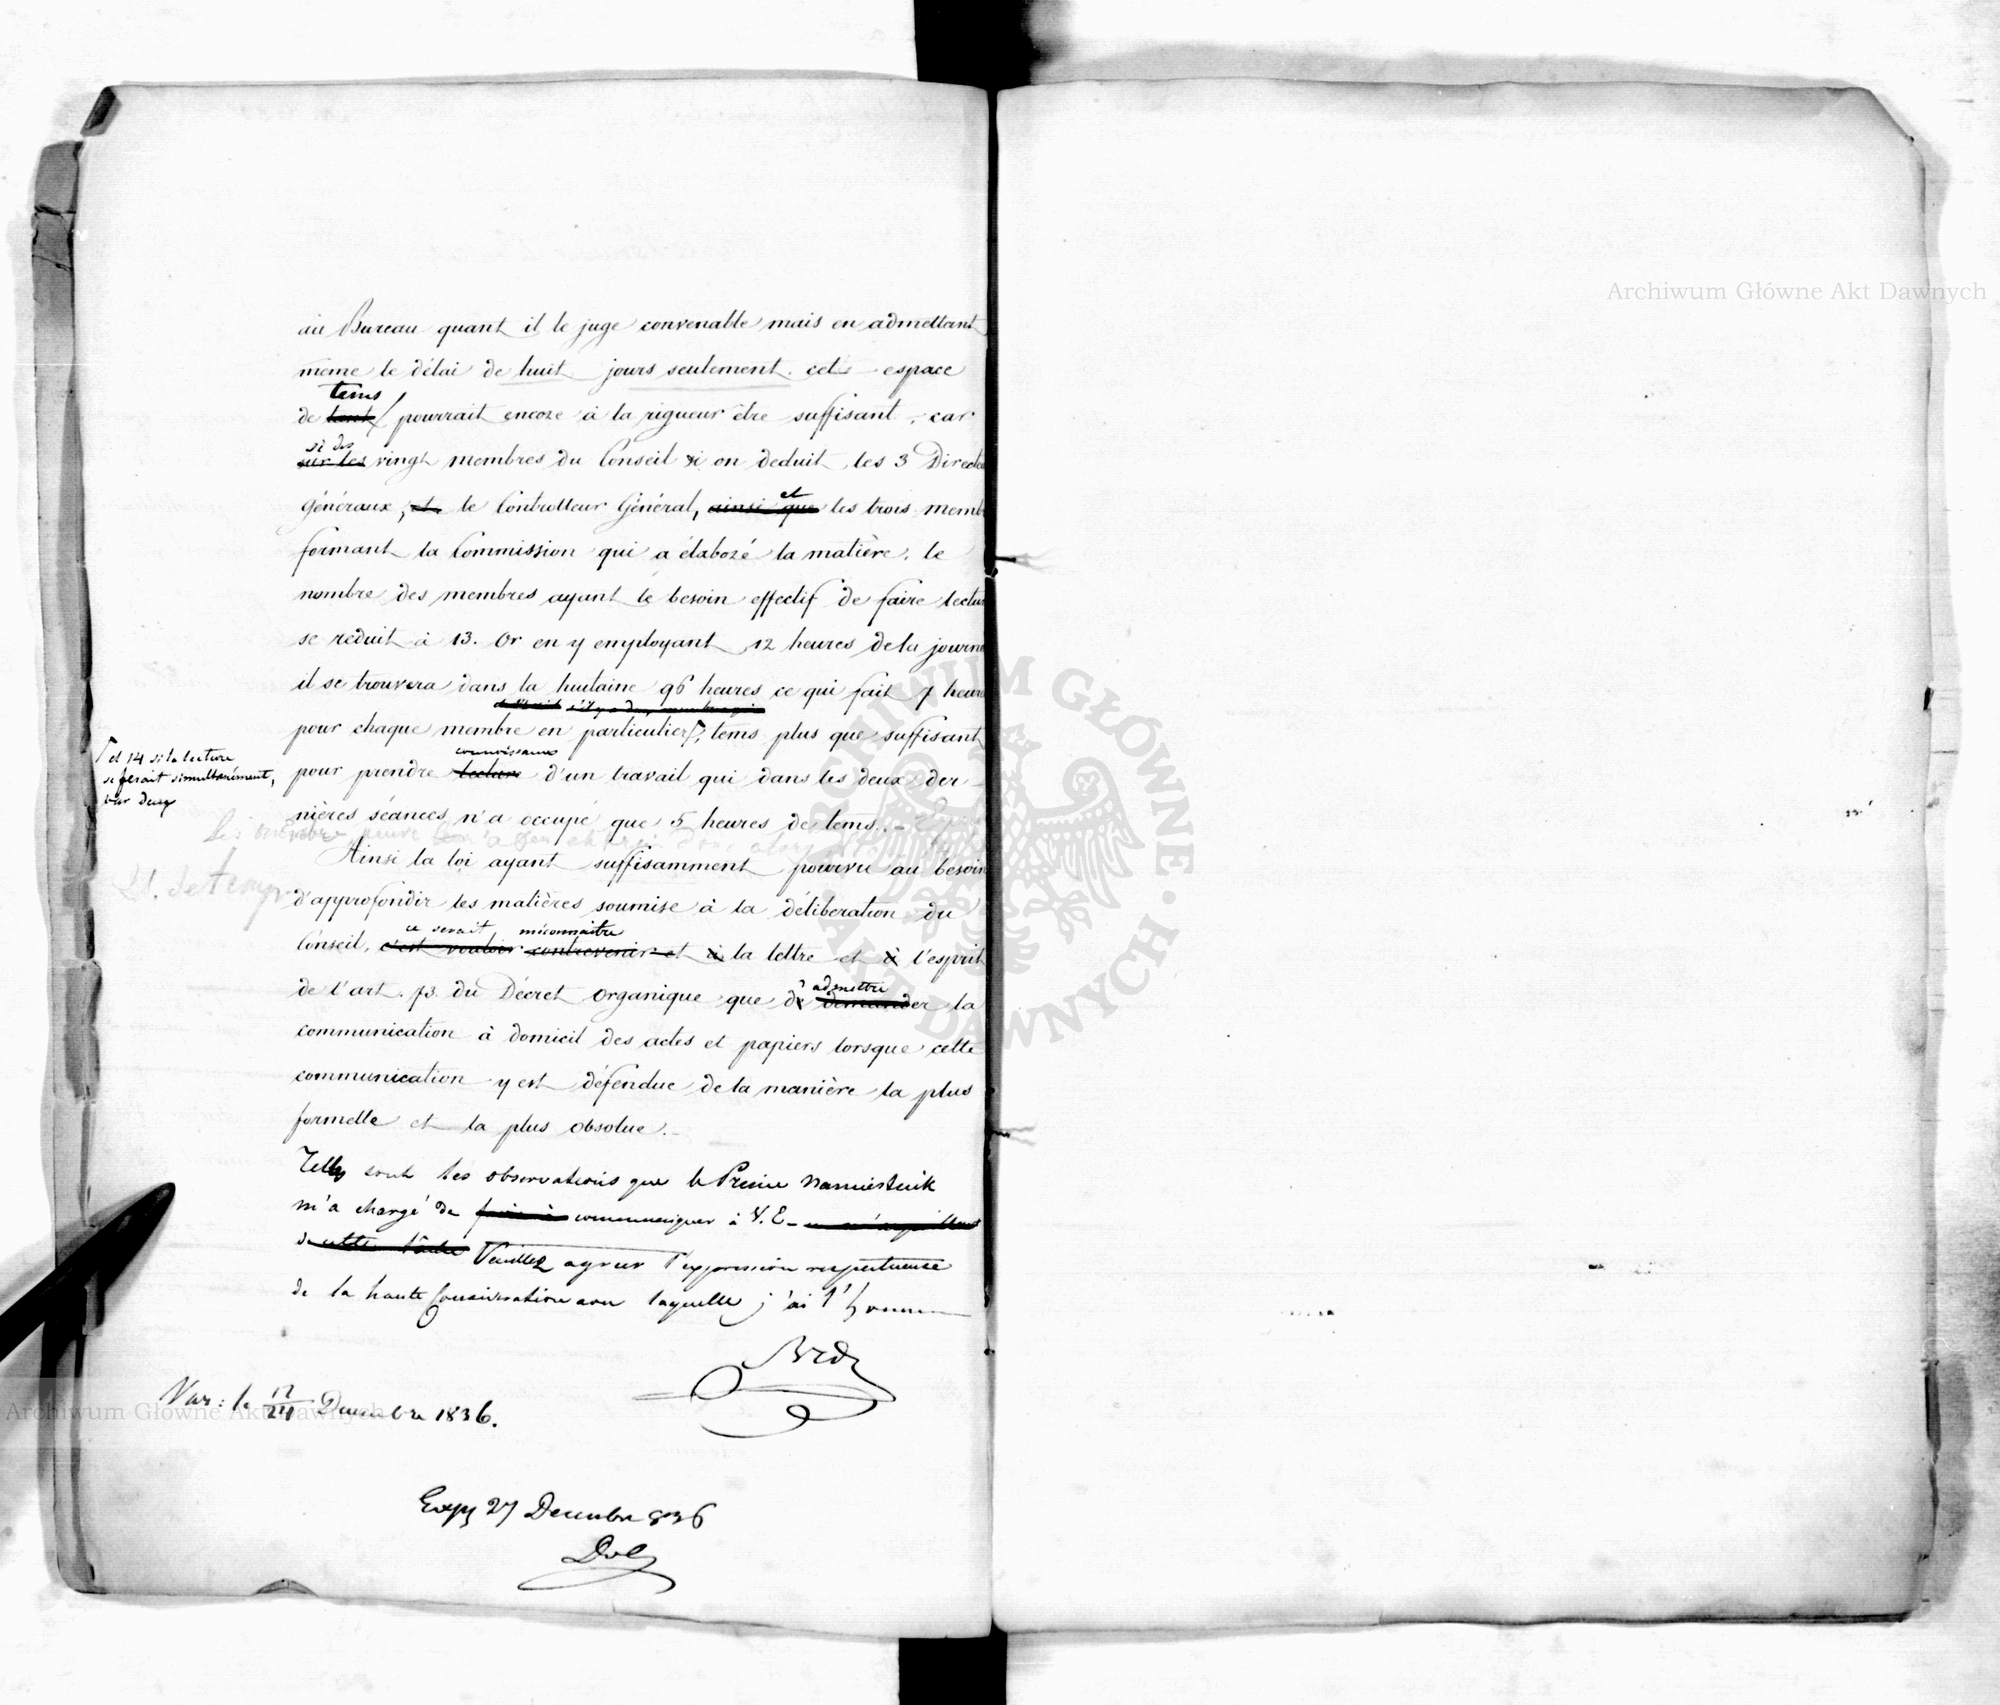 au Bureau quant il le juge convenable mais en admettant
même le délai de huit jours seulement cet espace
tems
de pourrait encore à la rigueur être suffisant, car
si des
sur les vingt membres du Conseil si on deduit les 3 Directe
Généraux, et le Controlleur Général, ainsi que et les trois memb
formant la Commission qui a élaboré la matière, le
nombre des membres ayant le besoin effectif de faire lectur
se reduit à 13. Or en y employant 12 heures de la journ
il se trouvera dans la huitaine 96 heures ce qui fait 7 heure
pour chaque membre en particulier, tems plus que suffisant
et 14 si la lecture
se ferait simultanément,
par deux
connoissance
pour prendre lecture d'un travail qui dans les deux der
nières séances n'a occupé que 5 heures de tems.
Ainsi la loi ayant suffisamment pourvu au besoin
d'approfondir les matières soumise à la déliberation du
ce serait méconnaitre
Conseil, c'est vouloir contrevenir et à la lettre et à l'esprit
admettre
de l'art. 73. du Décret Organique que de demander la
communication à domicil des actes et papiers lorsque cette
communication y est défendue de la manière la plus
formelle et la plus absolue.
Telles sont les observations que le Prince Namiestnik
m'a chargé de communiquer à V. E.
Veuillez agréer l'expression respectueuse
de la haute Consideration avec laquelle j'ai l'honneur
Var: le 12/24 Decembre 1836.
Exp 27 Decembre 836
Archiwum Główne Akt Dawnych
Archiwum Główne Akt Dawnych
ARCHIWUM GŁÓWNE AKT DAWNYCH